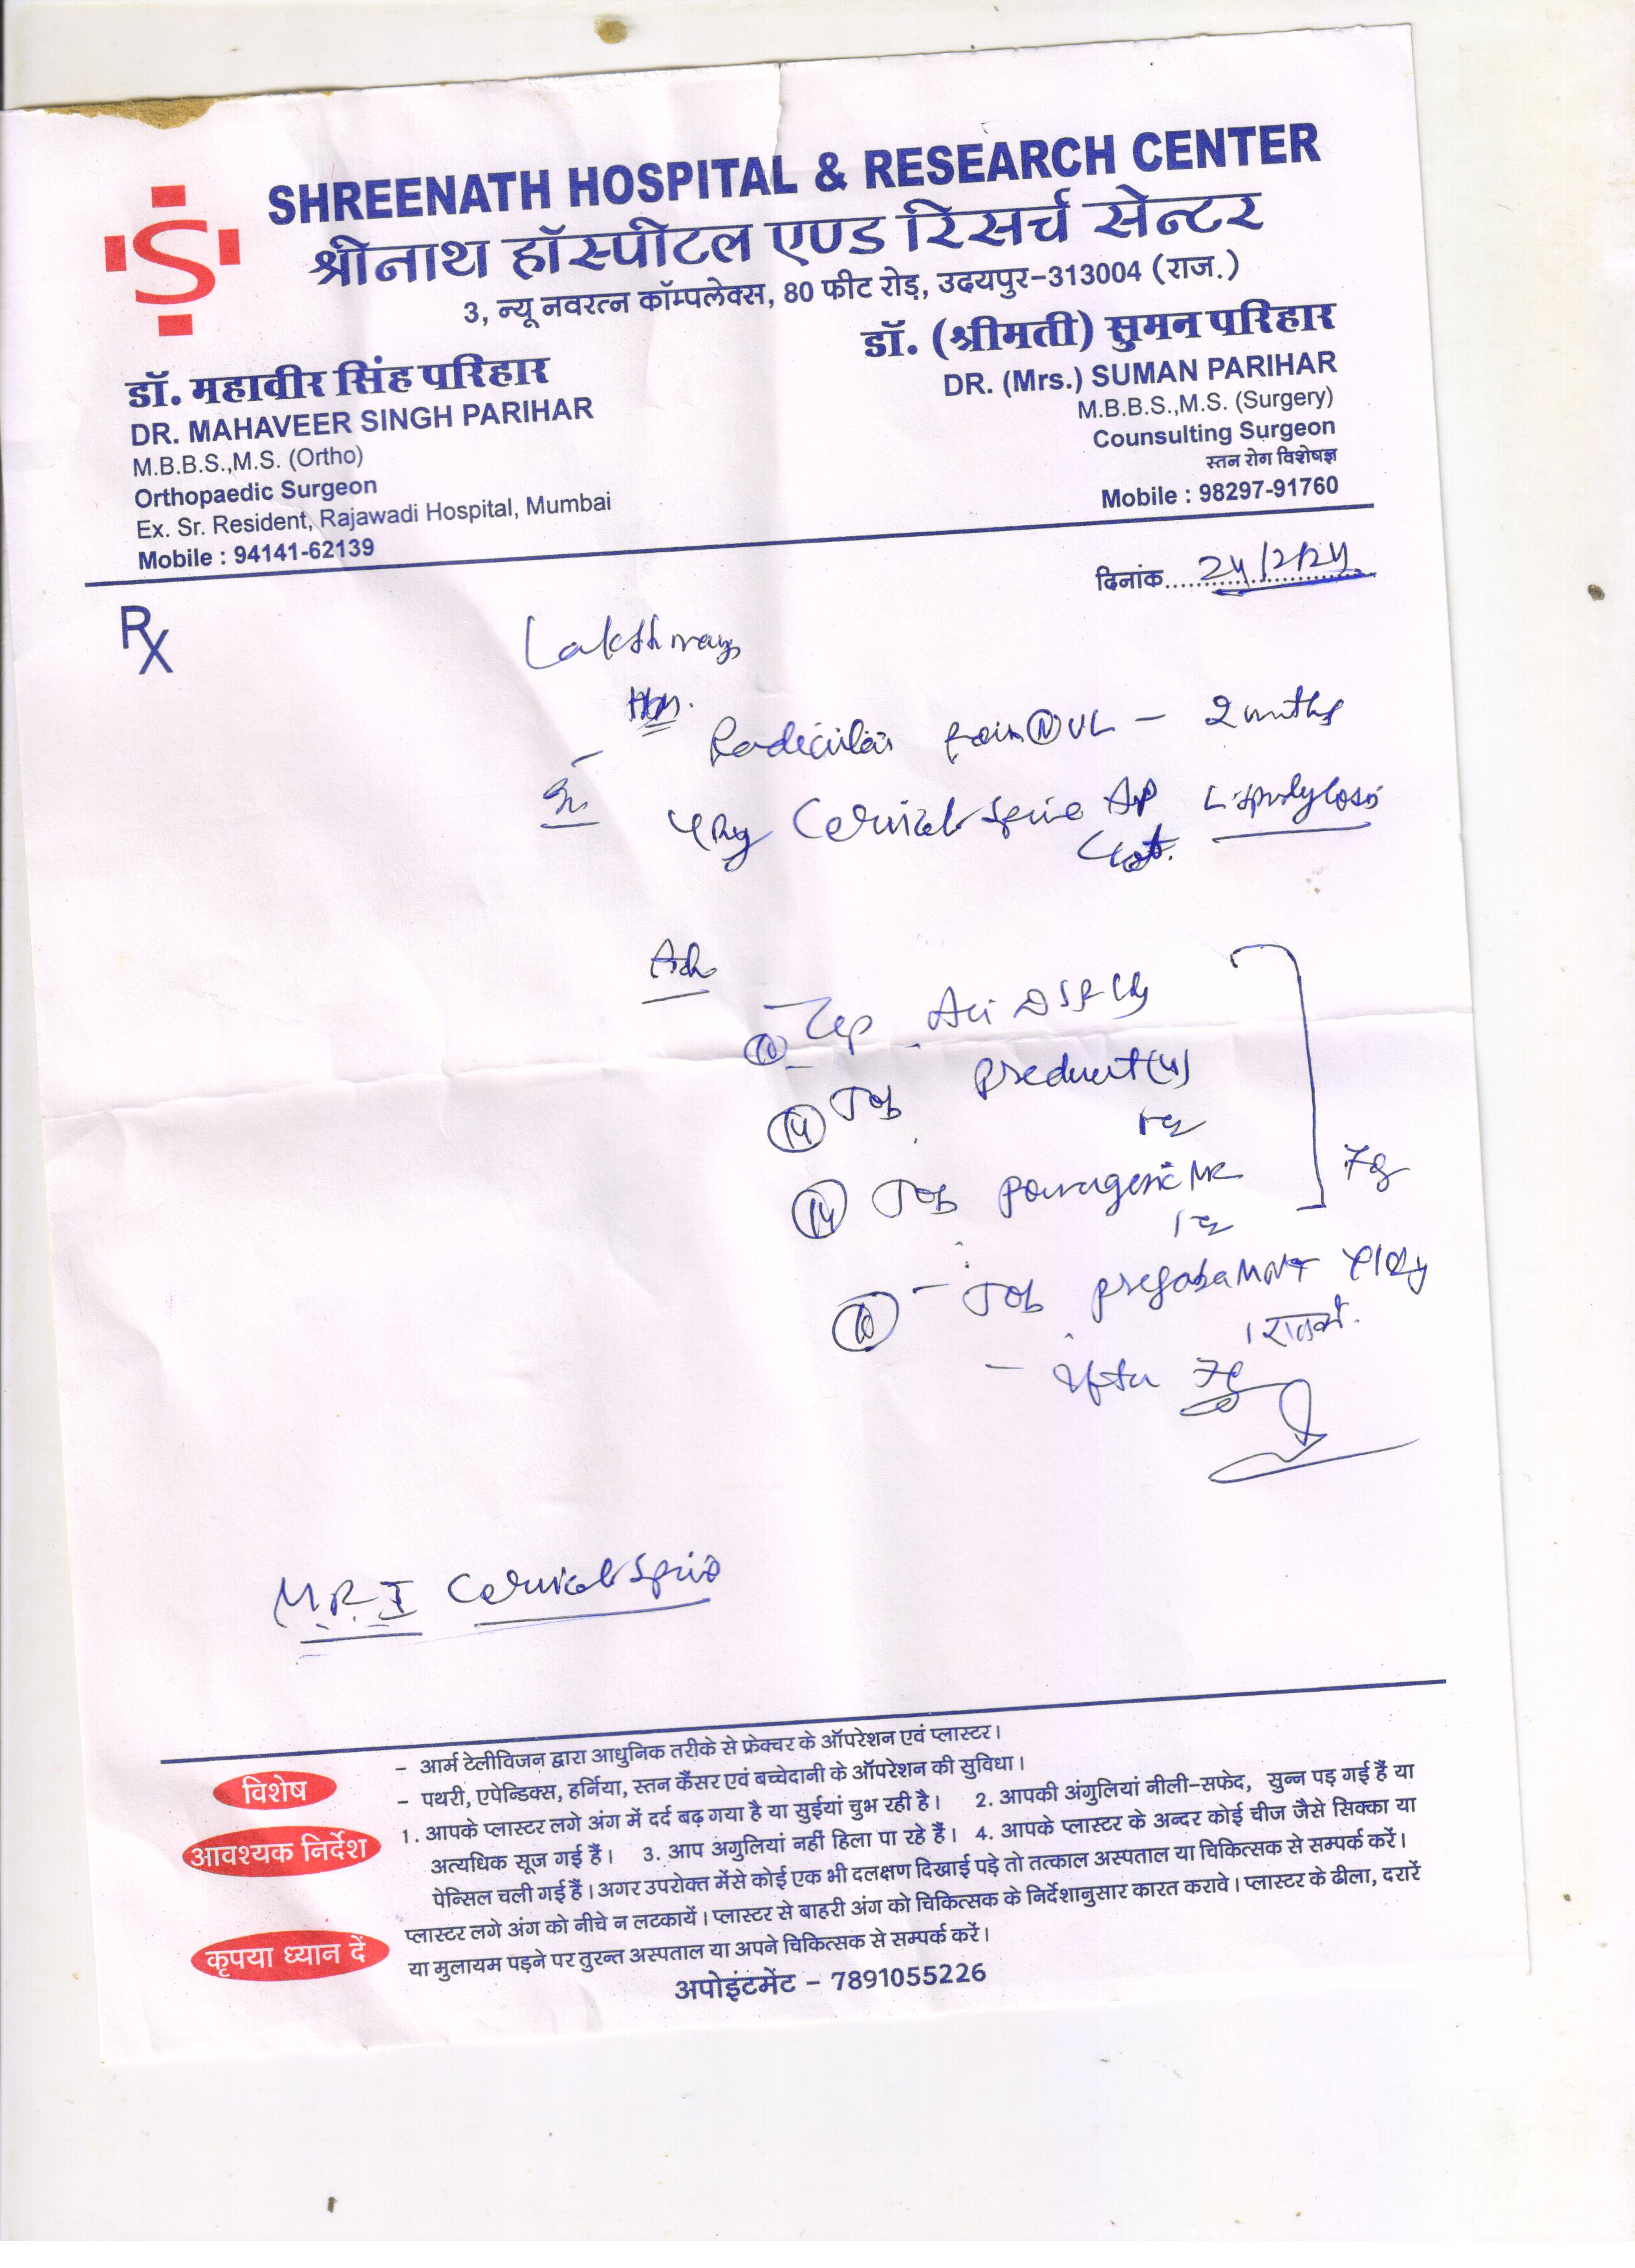 SHREENATH HOSPITAL & RESEARCH CENTER
श्रीनाथ हॉस्पीटल एण्ड रिसर्च सेन्टर
3, न्यू नवरत्न कॉम्पलेक्स, 80 फीट रोड़, उदयपुर-313004 (राज.)
डॉ. महावीर सिंह परिहार
DR. MAHAVEER SINGH PARIHAR
M.B.B.S.,M.S. (Ortho)
Orthopaedic Surgeon
Ex. Sr. Resident, Rajawadi Hospital, Mumbai
Mobile : 94141-62139
डॉ. (श्रीमती) सुमन परिहार
DR. (Mrs.) SUMAN PARIHAR
M.B.B.S.,M.S. (Surgery)
Counsulting Surgeon
स्तन रोग विशेषज्ञ
Mobile : 98297-91760
दिनांक..... 24/2/24
Rx
Radicular pain UL - 2 months
Cervical Spine AP
Adv
10 Cap
14 Tab
14 Tab MR
7d
10 - Tab
1 रात को
- after 7d
M.R.I Cervical Spine
विशेष
- आर्म टेलीविजन द्वारा आधुनिक तरीके से फ्रेक्चर के ऑपरेशन एवं प्लास्टर।
- पथरी, एपेन्डिक्स, हर्निया, स्तन कैंसर एवं बच्चेदानी के ऑपरेशन की सुविधा।
आवश्यक निर्देश
1. आपके प्लास्टर लगे अंग में दर्द बढ़ गया है या सुईयां चुभ रही है। 2. आपकी अंगुलियां नीली-सफेद, सुन्न पड़ गई हैं या
अत्यधिक सूज गई हैं। 3. आप अंगुलियां नहीं हिला पा रहे हैं। 4. आपके प्लास्टर के अन्दर कोई चीज जैसे सिक्का या
पेन्सिल चली गई हैं। अगर उपरोक्त मेंसे कोई एक भी दलक्षण दिखाई पड़े तो तत्काल अस्पताल या चिकित्सक से सम्पर्क करें।
कृपया ध्यान दें
प्लास्टर लगे अंग को नीचे न लटकायें। प्लास्टर से बाहरी अंग को चिकित्सक के निर्देशानुसार कारत करावे। प्लास्टर के ढीला, दरारें
या मुलायम पड़ने पर तुरन्त अस्पताल या अपने चिकित्सक से सम्पर्क करें।
अपोइंटमेंट - 7891055226